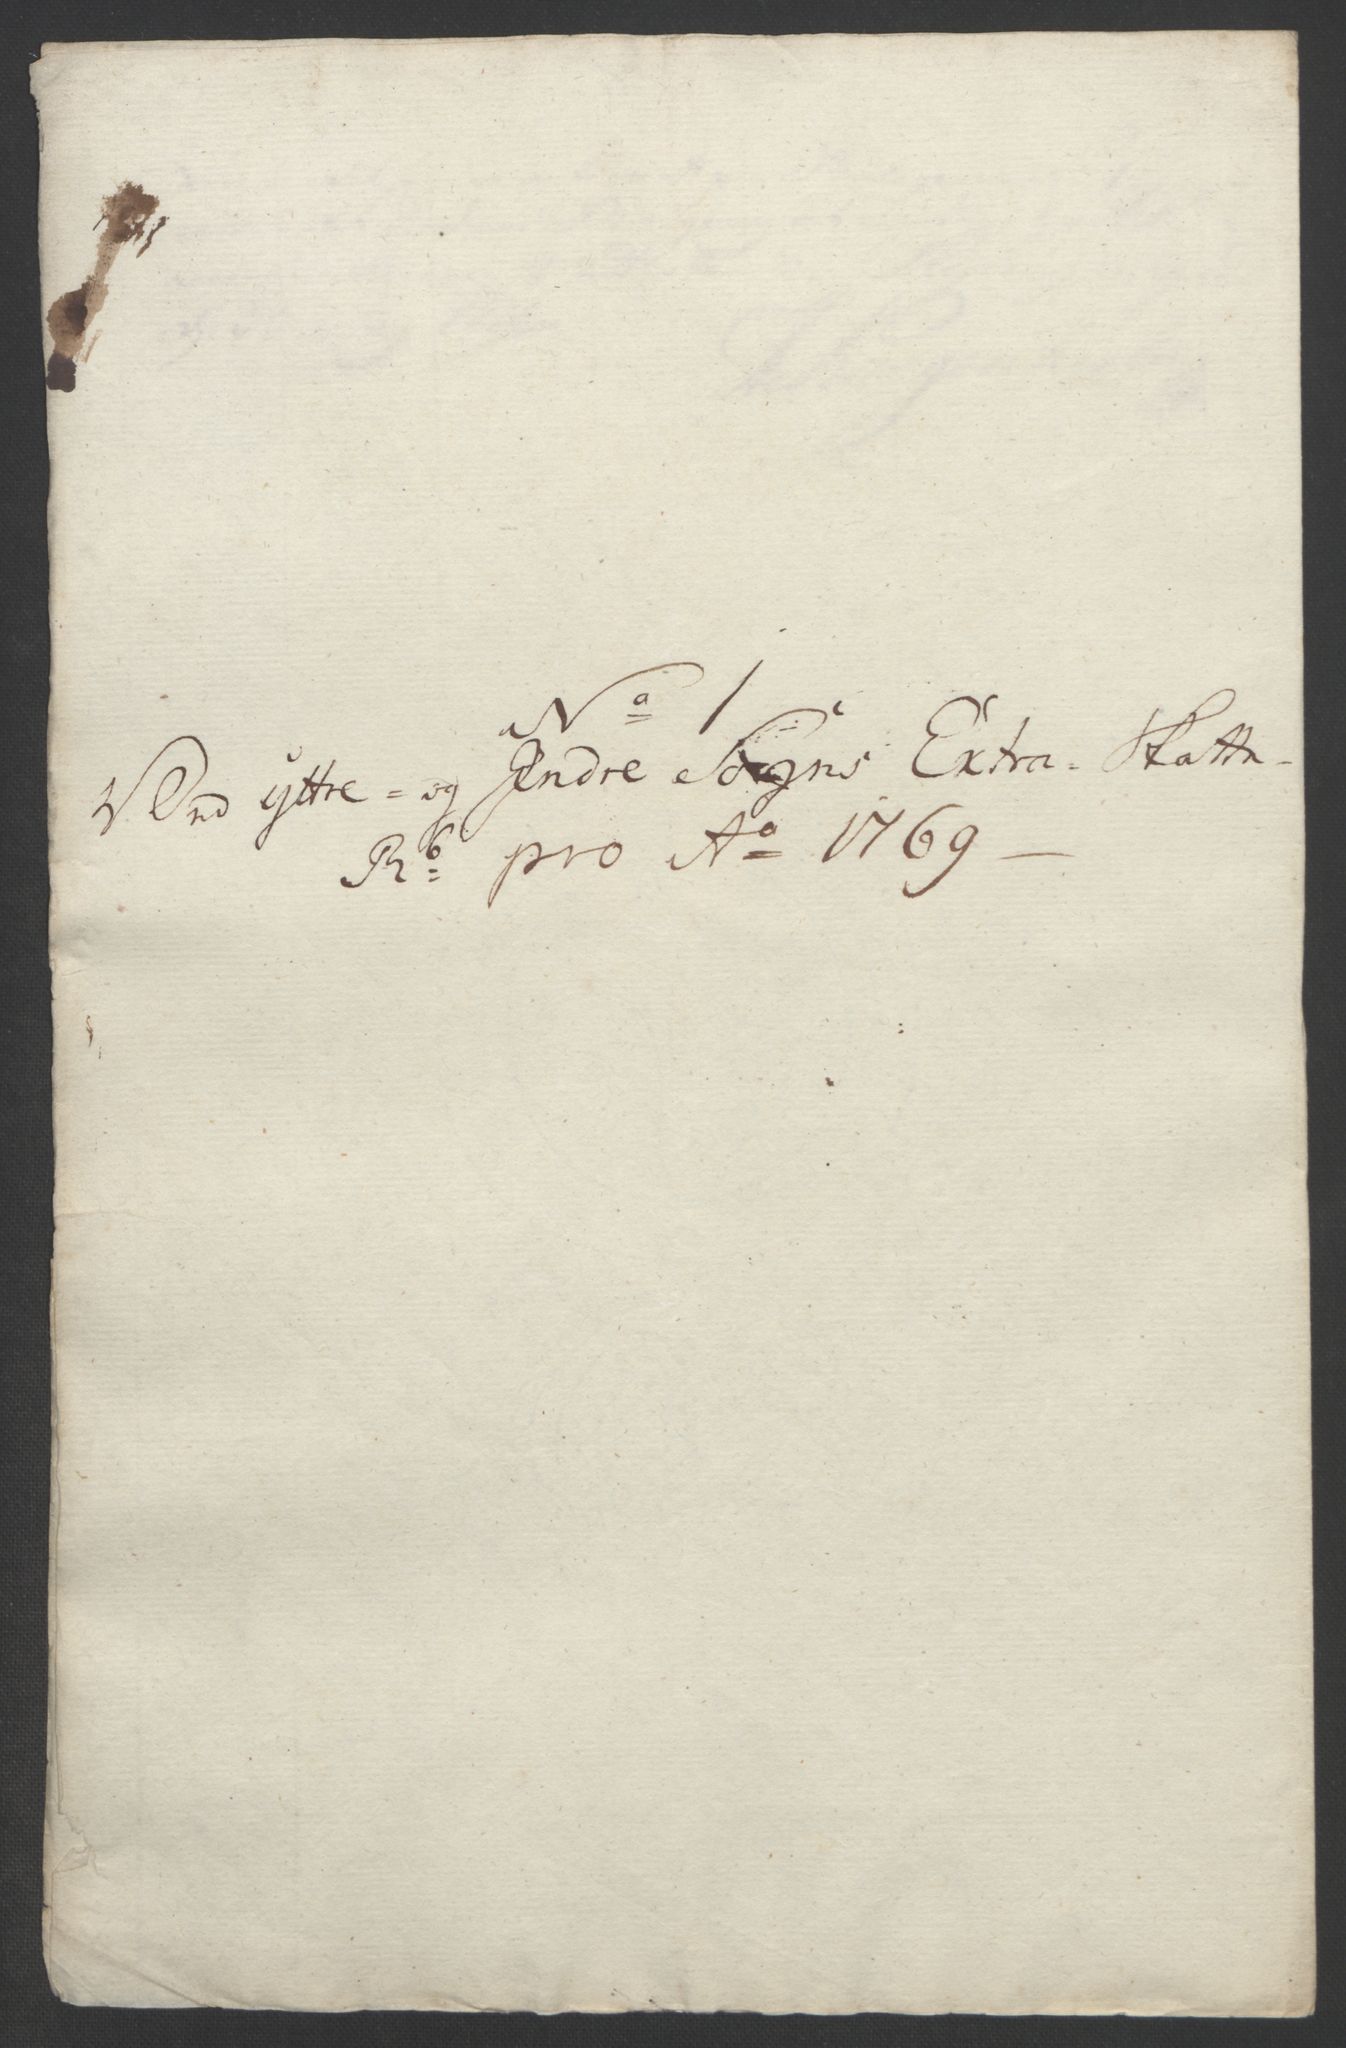 N a 1
Ved ytre- og Indre Sogns Extra- Skatte-
R b pro A o 1769 —